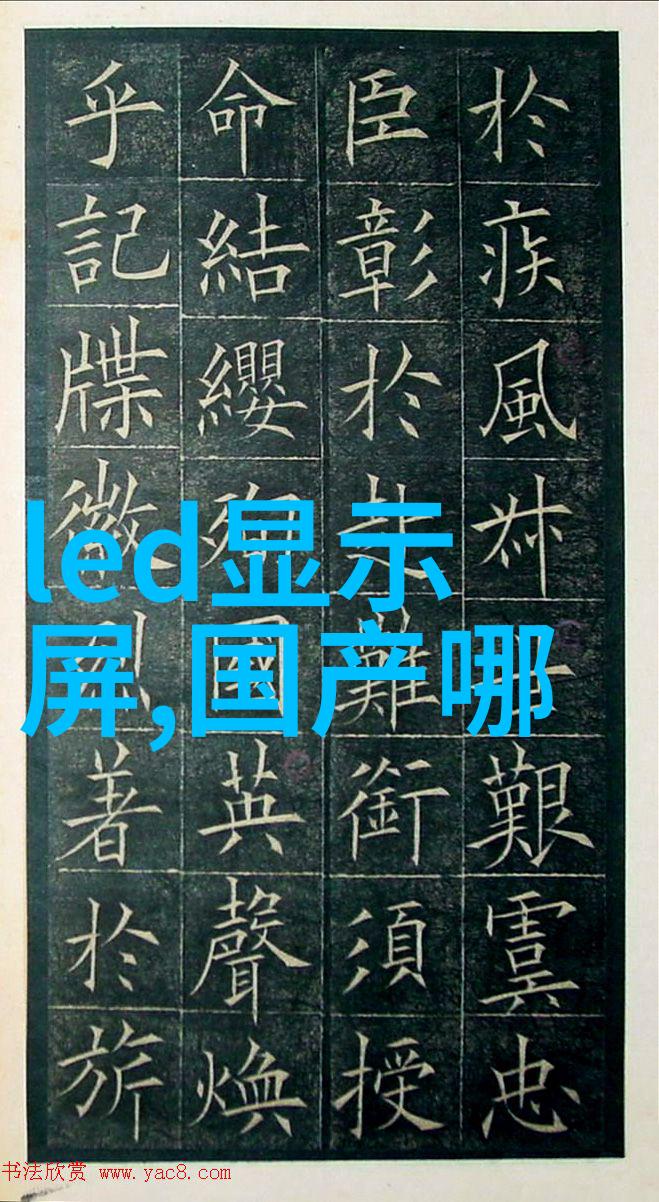 於疾風叔世艱虞忠
臣彰於赴難銜須授
命結纓殉國英聲煥
乎記牒徽烈著於旂
led显示
屏,国产哪
书法欣赏 www.yac8.com